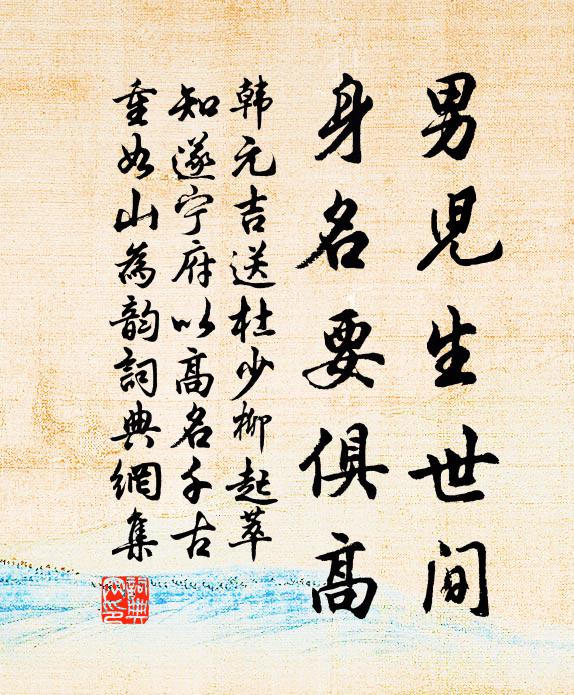 男児生世间
身名要俱高
韩元吉送杜少柳起莘
知遂宁府以高名千古
重如山为韵词典網集